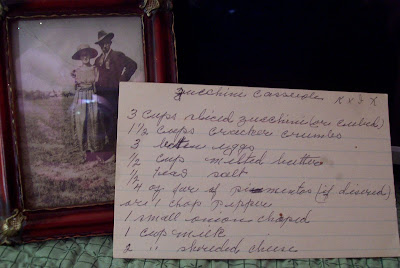 Zucchini Casserole X X 3 X
3 cups sliced zucchini (or cubed)
1 1/2 cups cracker crumbs
3 beaten eggs
1/2 cup melted butter
1/2 teas salt
4 oz jar of pimentos (if desired)
or 1 chop pepper
1 small onion chopped
1 cup milk
2 " shredded cheese